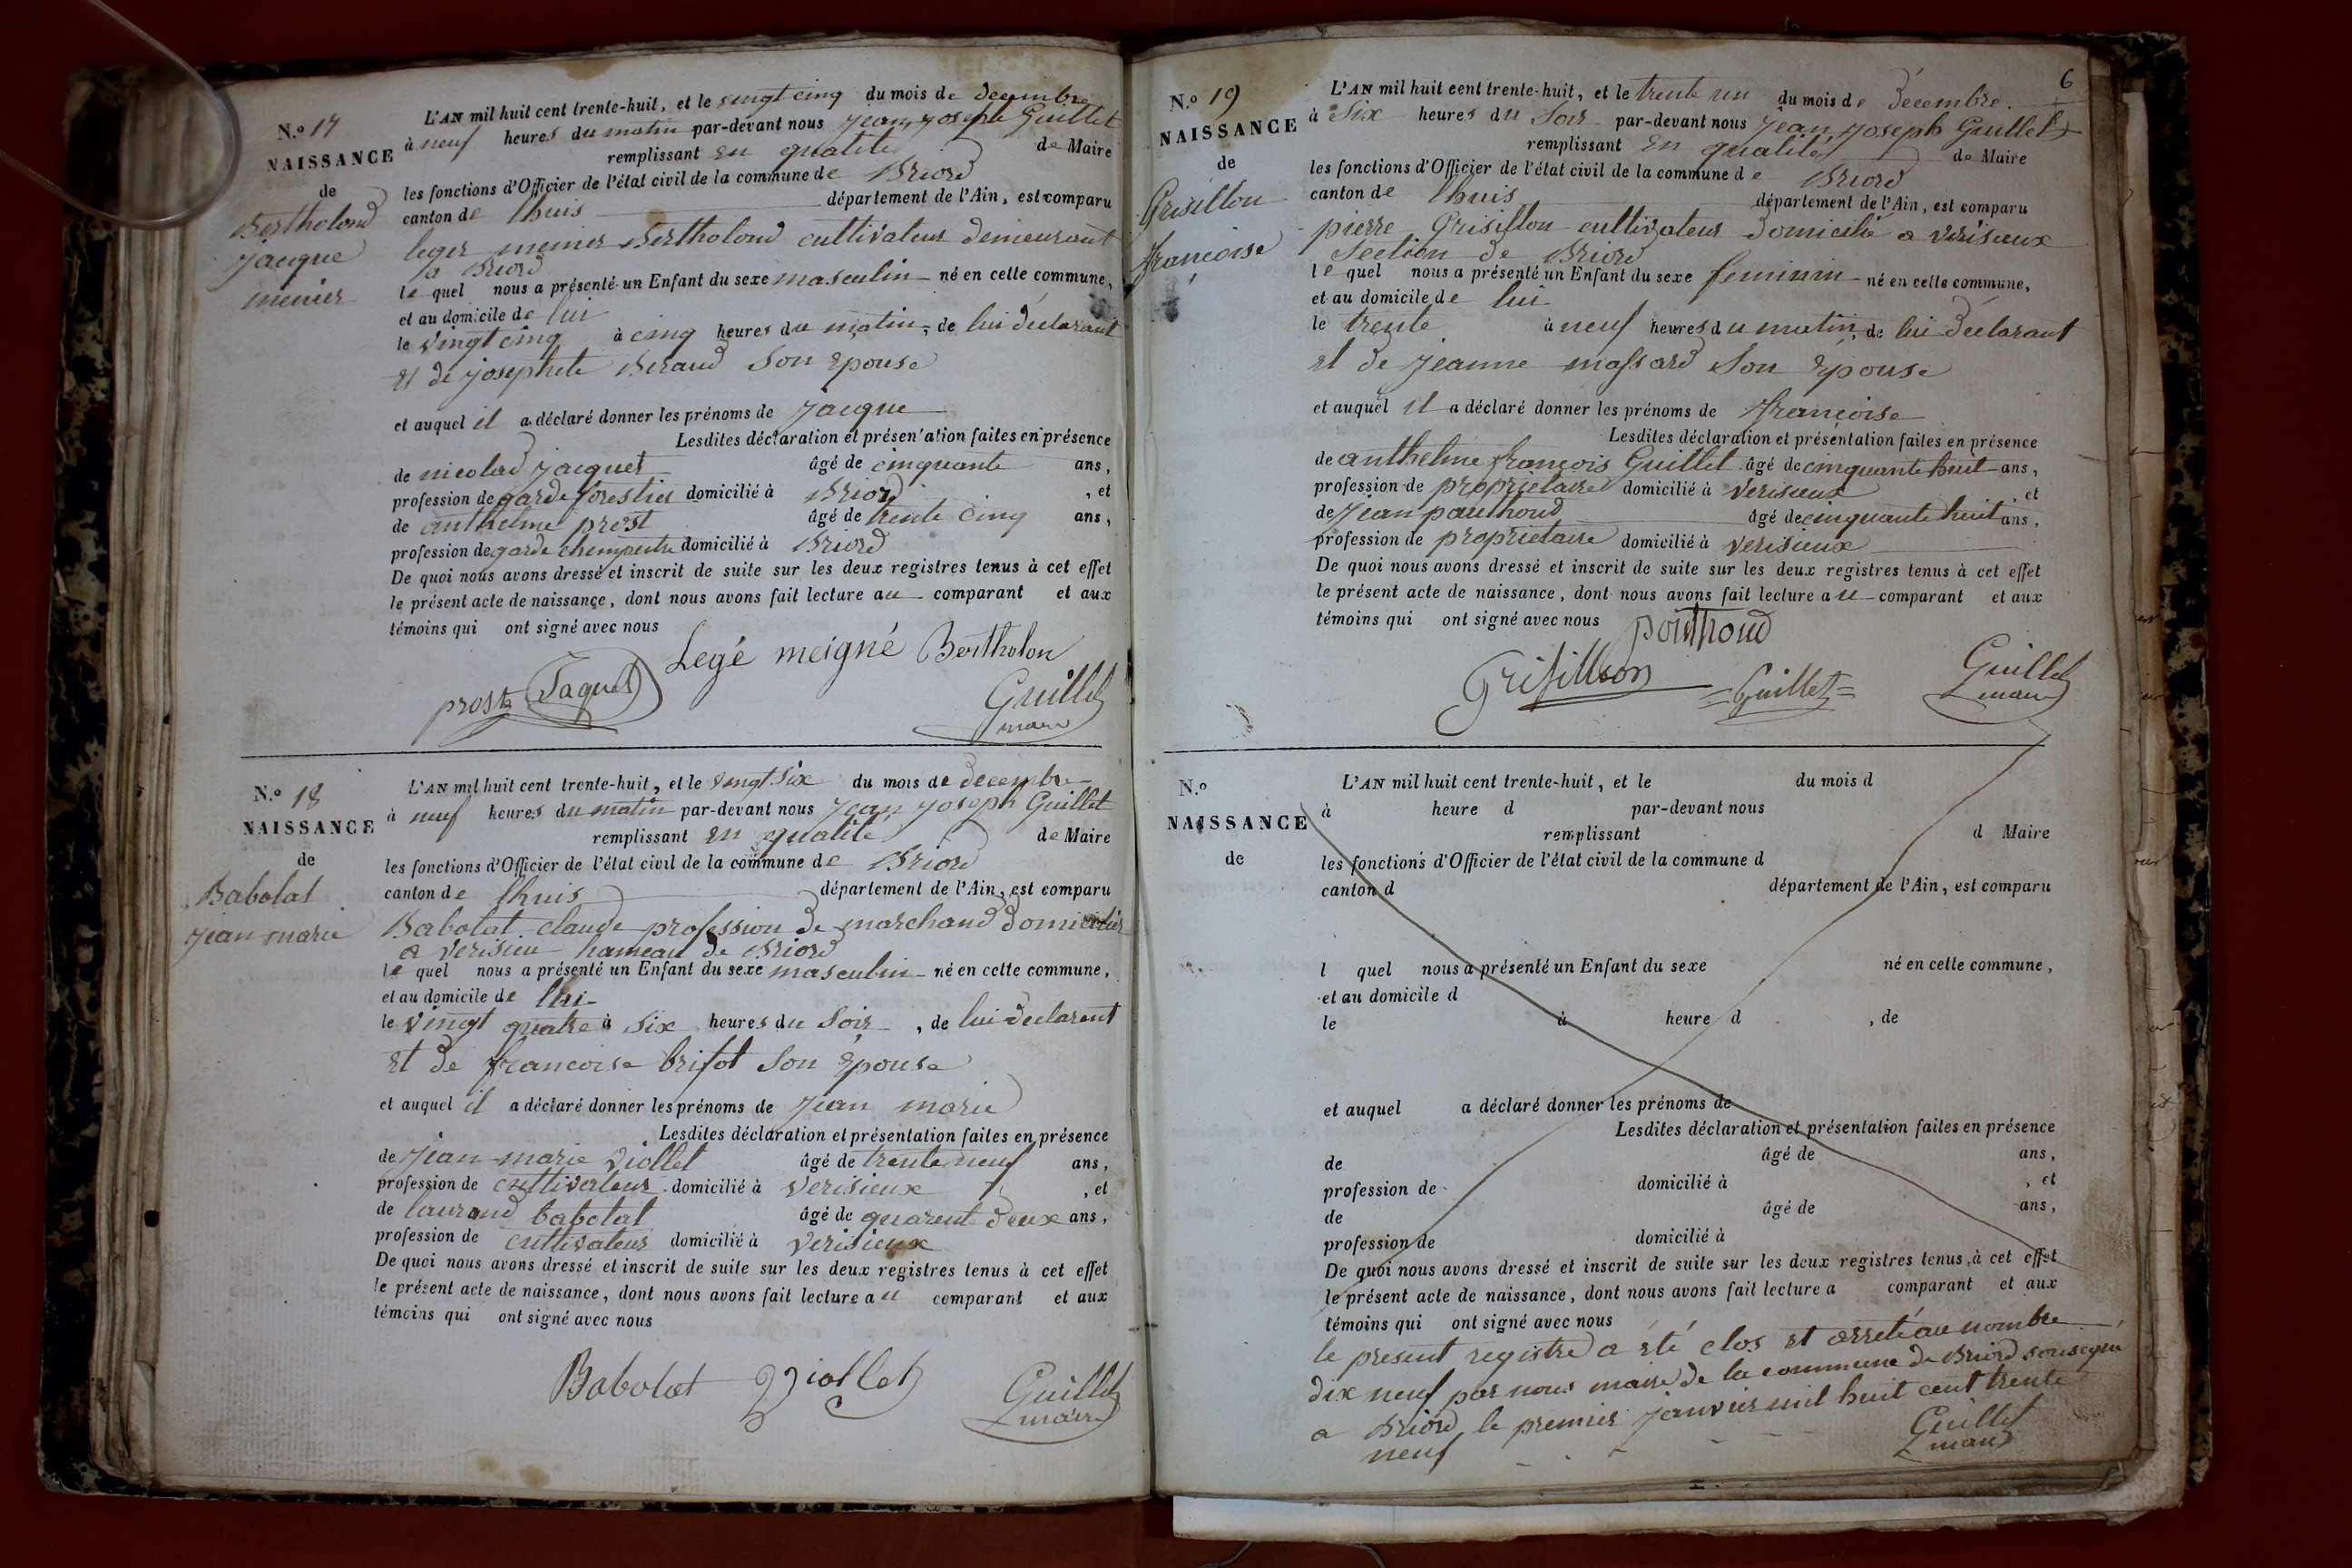 N.o 17
NAISSANCE
de
Bertholond
jacque
menier
L'AN mil huit cent trente-huit, et le vingt cinq du mois de decembre
à neuf heures du matin par-devant nous jean joseph Guillet
remplissant en qualité de Maire
les fonctions d'Officier de l'état civil de la commune de Briord
canton de lhuis département de l'Ain, est comparu
leger menier Bertholond cultivateur demeurant
a Briord
le quel nous a présenté un Enfant du sexe masculin né en cette commune,
et au domicile de lui
le vingt cinq à cinq heures du matin, de lui déclarant
et de josephete Beraud son epouse
et auquel il a déclaré donner les prénoms de jacque
Lesdites déclaration et présentation faites en présence
de nicolad jacquet âgé de cinquante ans,
profession de garde forestier domicilié à Briord, et
de anthelme prost âgé de trente cinq ans,
profession de garde champentre domicilié à Briord
De quoi nous avons dressé et inscrit de suite sur les deux registres tenus à cet effet
le présent acte de naissance, dont nous avons fait lecture au comparant et aux
témoins qui ont signé avec nous
Legé meigné Bertholon
prost Jaquet Guillet
maire
N.o 18
NAISSANCE
de
Babolat
jean marie
L'AN mil huit cent trente-huit, et le vingt six du mois de decembre
à neuf heures du matin par-devant nous jean joseph Guillet
remplissant en qualité de Maire
les fonctions d'Officier de l'état civil de la commune de Briord
canton de lhuis département de l'Ain, est comparu
Babolat claude profession de marchand domicilier
a verisieu hameau de Briord
le quel nous a présenté un Enfant du sexe masculin né en cette commune,
et au domicile de lui
le vingt quatre à six heures du soir, de lui declarent
et de francoise brifot son epouse
et auquel il a déclaré donner les prénoms de jean marie
Lesdites déclaration et présentation faites en présence
de jean marie viollet âgé de trente neuf ans,
profession de cultivateur domicilié à verisieux, et
de laurend babolat âgé de quarent deux ans,
profession de cultivateur domicilié à verisieux
De quoi nous avons dressé et inscrit de suite sur les deux registres tenus à cet effet
le présent acte de naissance, dont nous avons fait lecture au comparant et aux
témoins qui ont signé avec nous
Babolat Viollet Guillet
maire
6
N.o 19
NAISSANCE
de
Grisillon
françoise
L'AN mil huit cent trente-huit, et le trente un du mois de décembre.
à six heures du soir par-devant nous jean joseph Guillet
remplissant en qualité de Maire
les fonctions d'Officier de l'état civil de la commune de Briord
canton de lhuis département de l'Ain, est comparu
pierre Grisillon cultivateur domicilié a verisieux
section de Briord
le quel nous a présenté un Enfant du sexe feminin né en cette commune,
et au domicile de lui
le trente à neuf heures du matin, de lui déclarant
et de jeanne massard son épouse
et auquel il a déclaré donner les prénoms de françoise
Lesdites déclaration et présentation faites en présence
de anthelme françois Guillet âgé de cinquante huit ans,
profession de propriétaire domicilié à verisieux, et
de jean pauthoud âgé de cinquante huit ans,
profession de propriétaire domicilié à verisieux
De quoi nous avons dressé et inscrit de suite sur les deux registres tenus à cet effet
le présent acte de naissance, dont nous avons fait lecture au comparant et aux
témoins qui ont signé avec nous
pouthoud
Grisillon Guillet Guillet
maire
N.o
NAISSANCE
de
L'AN mil huit cent trente-huit, et le du mois d
à heure d par-devant nous
remplissant d Maire
les fonctions d'Officier de l'état civil de la commune d
canton d département de l'Ain, est comparu
l quel nous a présenté un Enfant du sexe né en cette commune,
et au domicile d
le à heure d , de
et auquel a déclaré donner les prénoms de
Lesdites déclaration et présentation faites en présence
de âgé de ans,
profession de domicilié à , et
de âgé de ans,
profession de domicilié à
De quoi nous avons dressé et inscrit de suite sur les deux registres tenus à cet effet
le présent acte de naissance, dont nous avons fait lecture a comparant et aux
témoins qui ont signé avec nous
le présent registre a été clos et arrêté au nombre
dix neuf par nous maire de la commune de Briord sousigné
a Briord le premier janvier mil huit cent trente
neuf
Guillet
maire